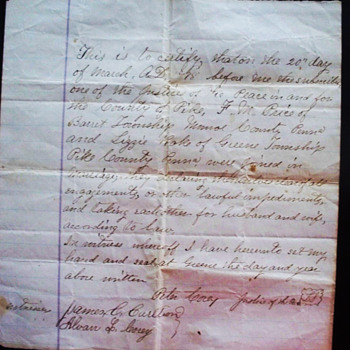 This is to certify, that on the 20th day
of March, A.D. before me the subscriber
one of the Justice of the Peace in and for
the County of Pike, F. M. Price of
Barret Township Monroe County Penna
and Lizzie of Greene Township
Pike County Penna were joined in
marriage, they
engagements, or other lawful impediments,
and taking each other for husband and wife,
according to Law.
In witness whereof I have hereunto set my
hand and seal at Greene the day and year
above written
Peter Corey Justice of the
James C. Carlton
Alvan L. Corey